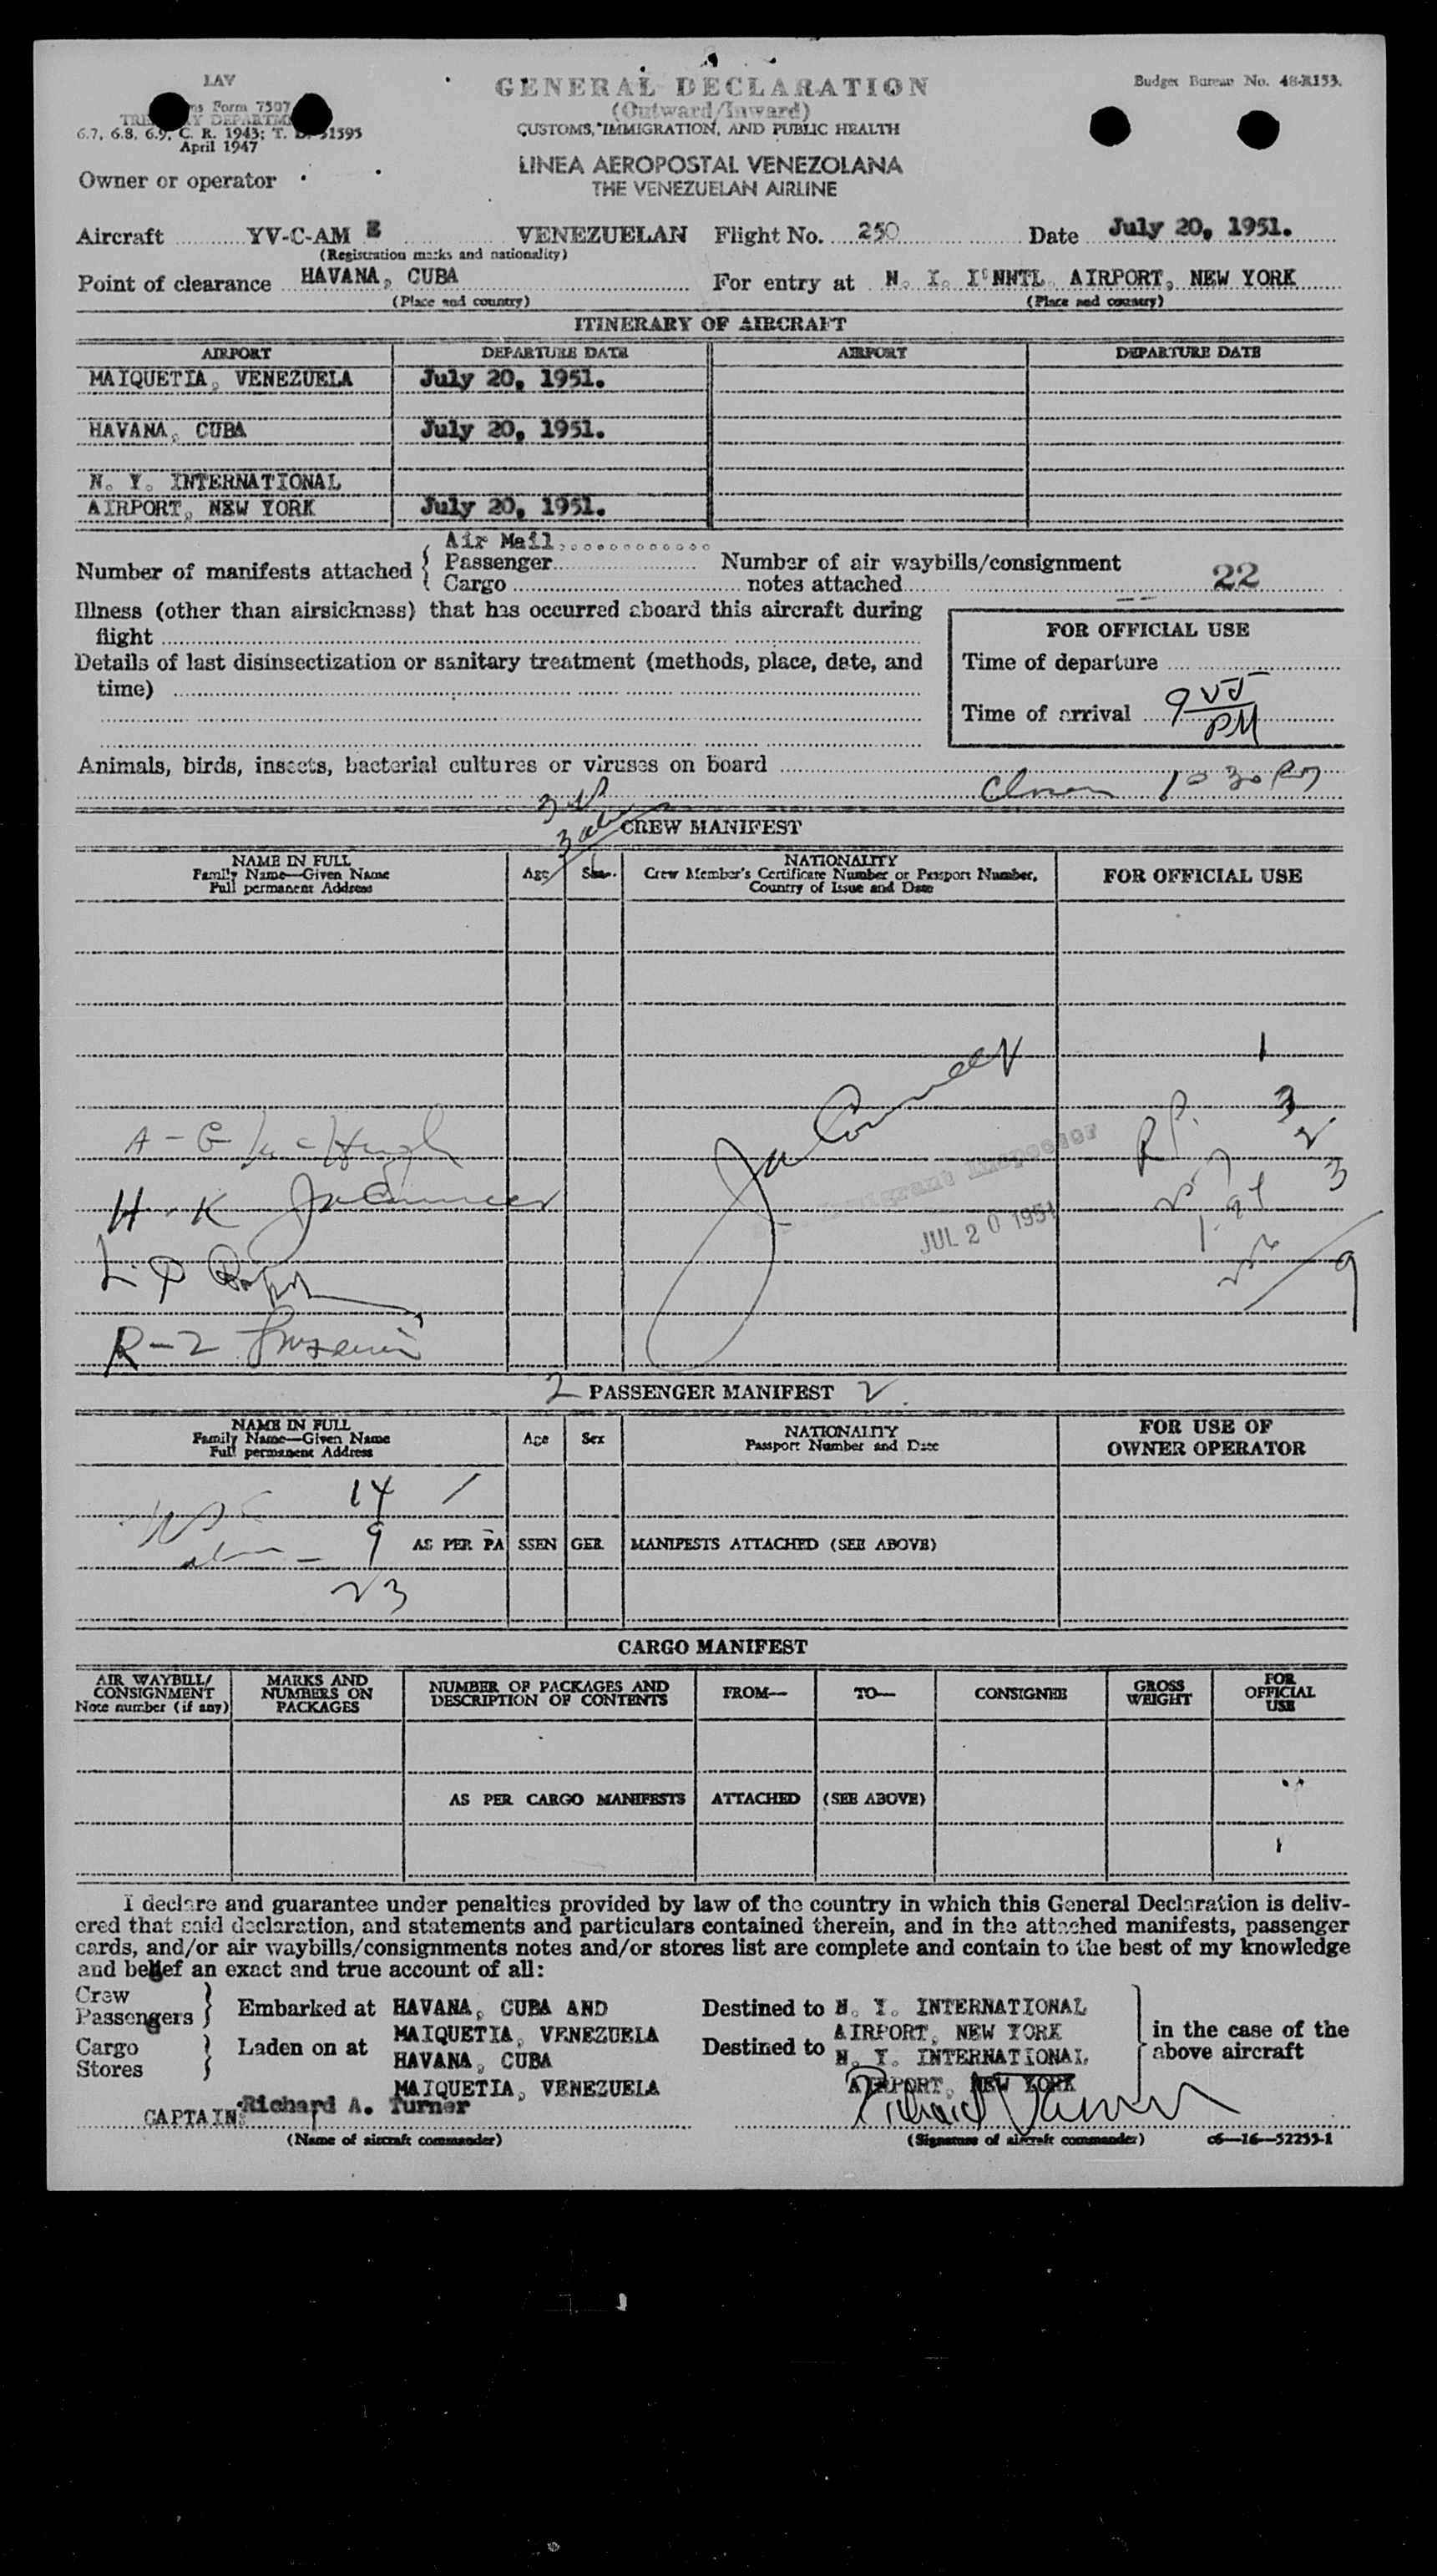 LAV
GENERAL DECLARATION
Budget Bureau No. 48-R153.
Form 7507
(Outward/Inward)
6.7, 6.8, 6.9, C. R. 1943; T. D. 51595
CUSTOMS, IMMIGRATION, AND PUBLIC HEALTH
April 1947
LINEA AEROPOSTAL VENEZOLANA
Owner or operator
THE VENEZUELAN AIRLINE
Aircraft YV-C-AM E VENEZUELAN Flight No. 250 Date July 20, 1951.
(Registration marks and nationality)
Point of clearance HAVANA, CUBA For entry at N. I. I'NNTL AIRPORT, NEW YORK
(Place and country) (Place and country)
ITINERARY OF AIRCRAFT
AIRPORT DEPARTURE DATE AIRPORT DEPARTURE DATE
MAIQUETIA, VENEZUELA July 20, 1951.
HAVANA, CUBA July 20, 1951.
N. Y. INTERNATIONAL
AIRPORT, NEW YORK July 20, 1951.
Air Mail
Number of manifests attached { Passenger Number of air waybills/consignment
Cargo notes attached 22
Illness (other than airsickness) that has occurred aboard this aircraft during
flight
FOR OFFICIAL USE
Details of last disinsectization or sanitary treatment (methods, place, date, and
time)
Time of departure
Time of arrival 9 PM
Animals, birds, insects, bacterial cultures or viruses on board
10 30 PM
CREW MANIFEST
NAME IN FULL
Family Name—Given Name
Full permanent Address
Age Sex
NATIONALITY
Crew Member's Certificate Number or Passport Number,
Country of Issue and Date
FOR OFFICIAL USE
1
3
R P. 2
A-G McHugh
3
H-K
Immigrant Inspector
JUL 20 1951
L-P
9
R-Z
2 PASSENGER MANIFEST 2
NAME IN FULL
Family Name—Given Name
Full permanent Address
Age Sex
NATIONALITY
Passport Number and Date
FOR USE OF
OWNER OPERATOR
14 /
9 AS PER PASSENGER MANIFESTS ATTACHED (SEE ABOVE)
23
CARGO MANIFEST
AIR WAYBILL/
CONSIGNMENT
Note number (if any)
MARKS AND
NUMBERS ON
PACKAGES
NUMBER OF PACKAGES AND
DESCRIPTION OF CONTENTS
FROM—
TO—
CONSIGNEE
GROSS
WEIGHT
FOR
OFFICIAL
USE
AS PER CARGO MANIFESTS ATTACHED (SEE ABOVE)
I declare and guarantee under penalties provided by law of the country in which this General Declaration is deliv-
ered that said declaration, and statements and particulars contained therein, and in the attached manifests, passenger
cards, and/or air waybills/consignments notes and/or stores list are complete and contain to the best of my knowledge
and belief an exact and true account of all:
Crew
Passengers } Embarked at HAVANA, CUBA AND
MAIQUETIA, VENEZUELA
Destined to N. Y. INTERNATIONAL
AIRPORT, NEW YORK
Cargo
Stores } Laden on at HAVANA, CUBA
MAIQUETIA, VENEZUELA
Destined to N. Y. INTERNATIONAL
AIRPORT, NEW YORK
} in the case of the
above aircraft
CAPTAIN: Richard A. Turner Richard Turner
(Name of aircraft commander) (Signature of aircraft commander) c6—16—52255-1